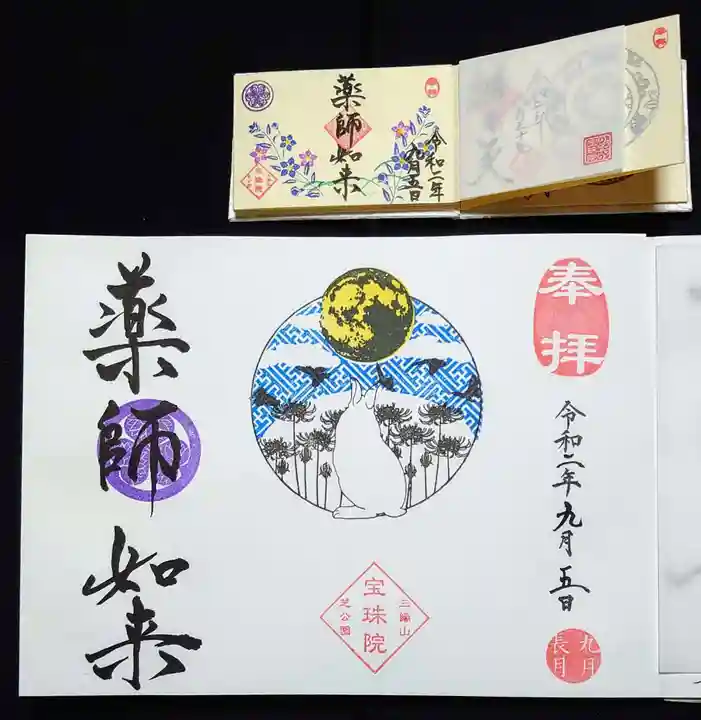 薬師如来
令和二年
九月五日
奉拝
令和二年九月五日
薬師如来
三縁山
宝珠院
芝公園
九月
長月